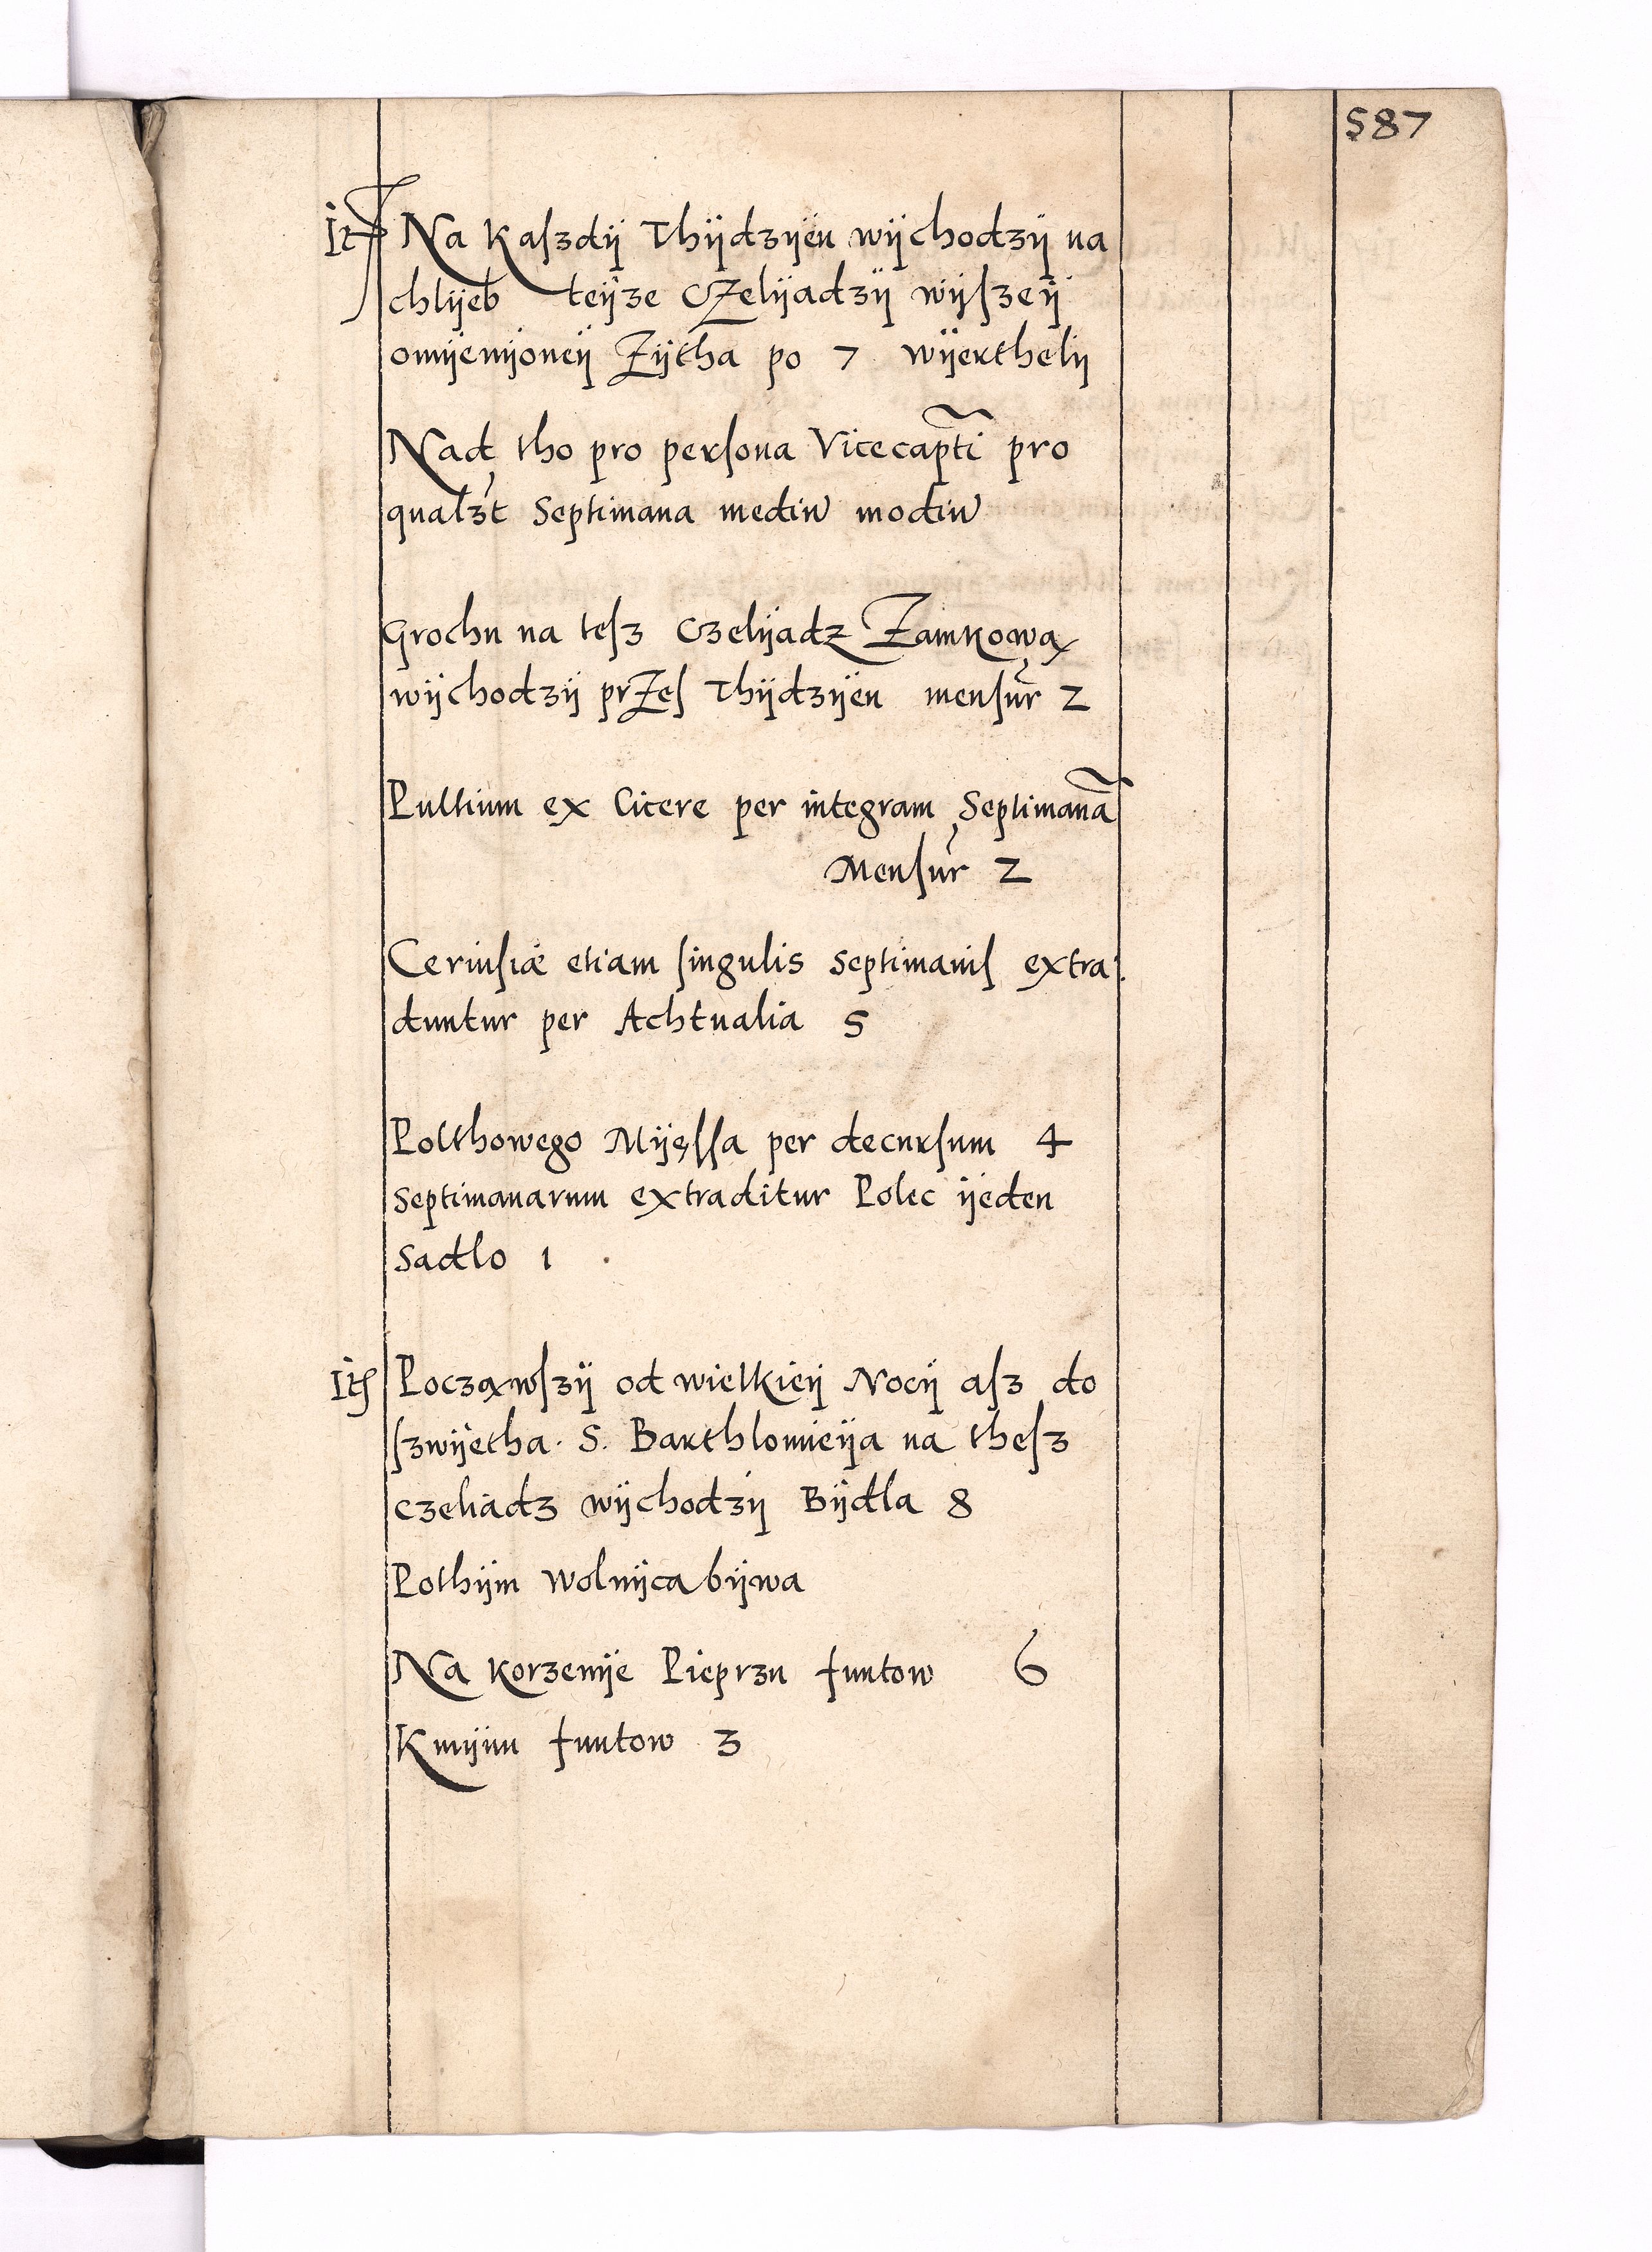 587
It Na Kaſzdij Thijdzijen wijchodzij na
chlijeb teijze Czelijadzij wijſzeij
omijenijoneij Zijtha po 7 wijerthelij
Nad tho pro perſona Vicecapti pro
qualzt Septimana mediu modiu
Grochu na teſz Czelijadz Zamkową
wijchodzij przeſ Thijdzijen menſur 2
Pultium ex Cicere per integram Septimanã
Menſur 2
Ceriuſiæ etiam ſingulis Septimaniſ extra
duntur per Achtualia 5
Polthowego Mijęſſa per decurſum 4
Septimanarum extraditur Polec ijeden
Sadlo 1
It Poczawſzij od wielkieij Nocij aſz do
ſzwijetha. S. Barthlomieija na theſz
czeliadz wijchodzij Bijdla 8
Pothijm wolnijca bijwa
Na korzenije Pieprzu funtow 6
Kmijnu funtow 3